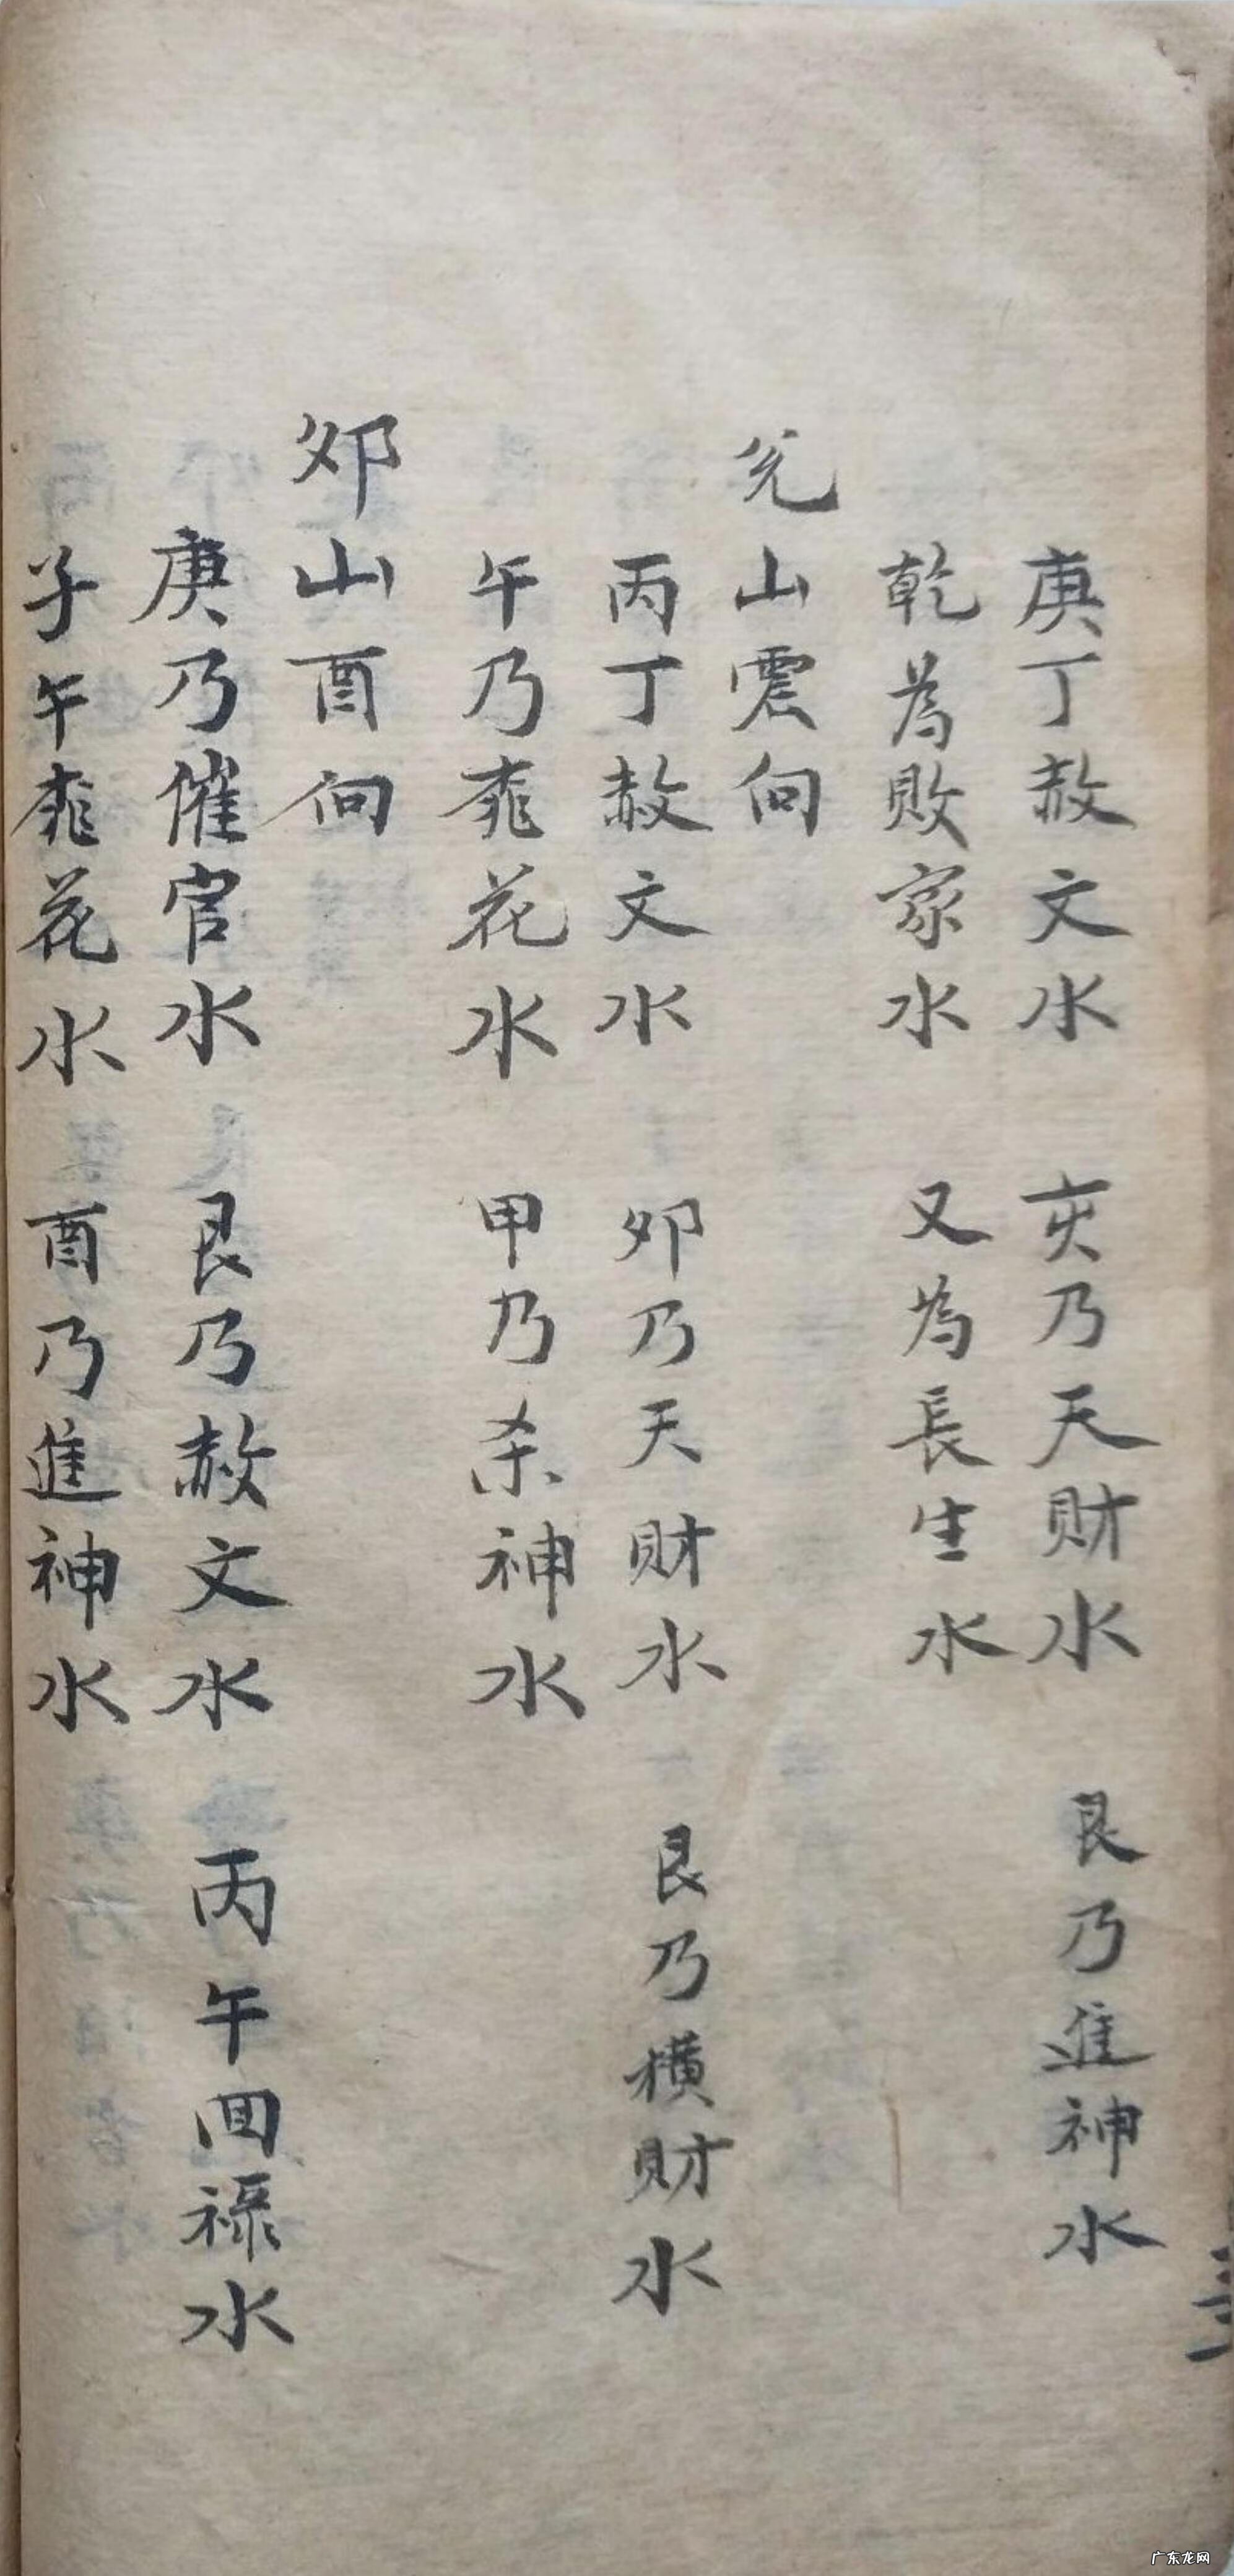 庚丁赦文水　亥乃天財水　艮乃進神水
乾為敗家水　又為長生水
兑山震向
丙丁赦文水　卯乃天財水　艮乃横財水
午乃桃花水　甲乃杀神水
卯山酉向
庚乃催官水　艮乃赦文水　丙午回禄水
子午桃花水　酉乃進神水
广东龙网